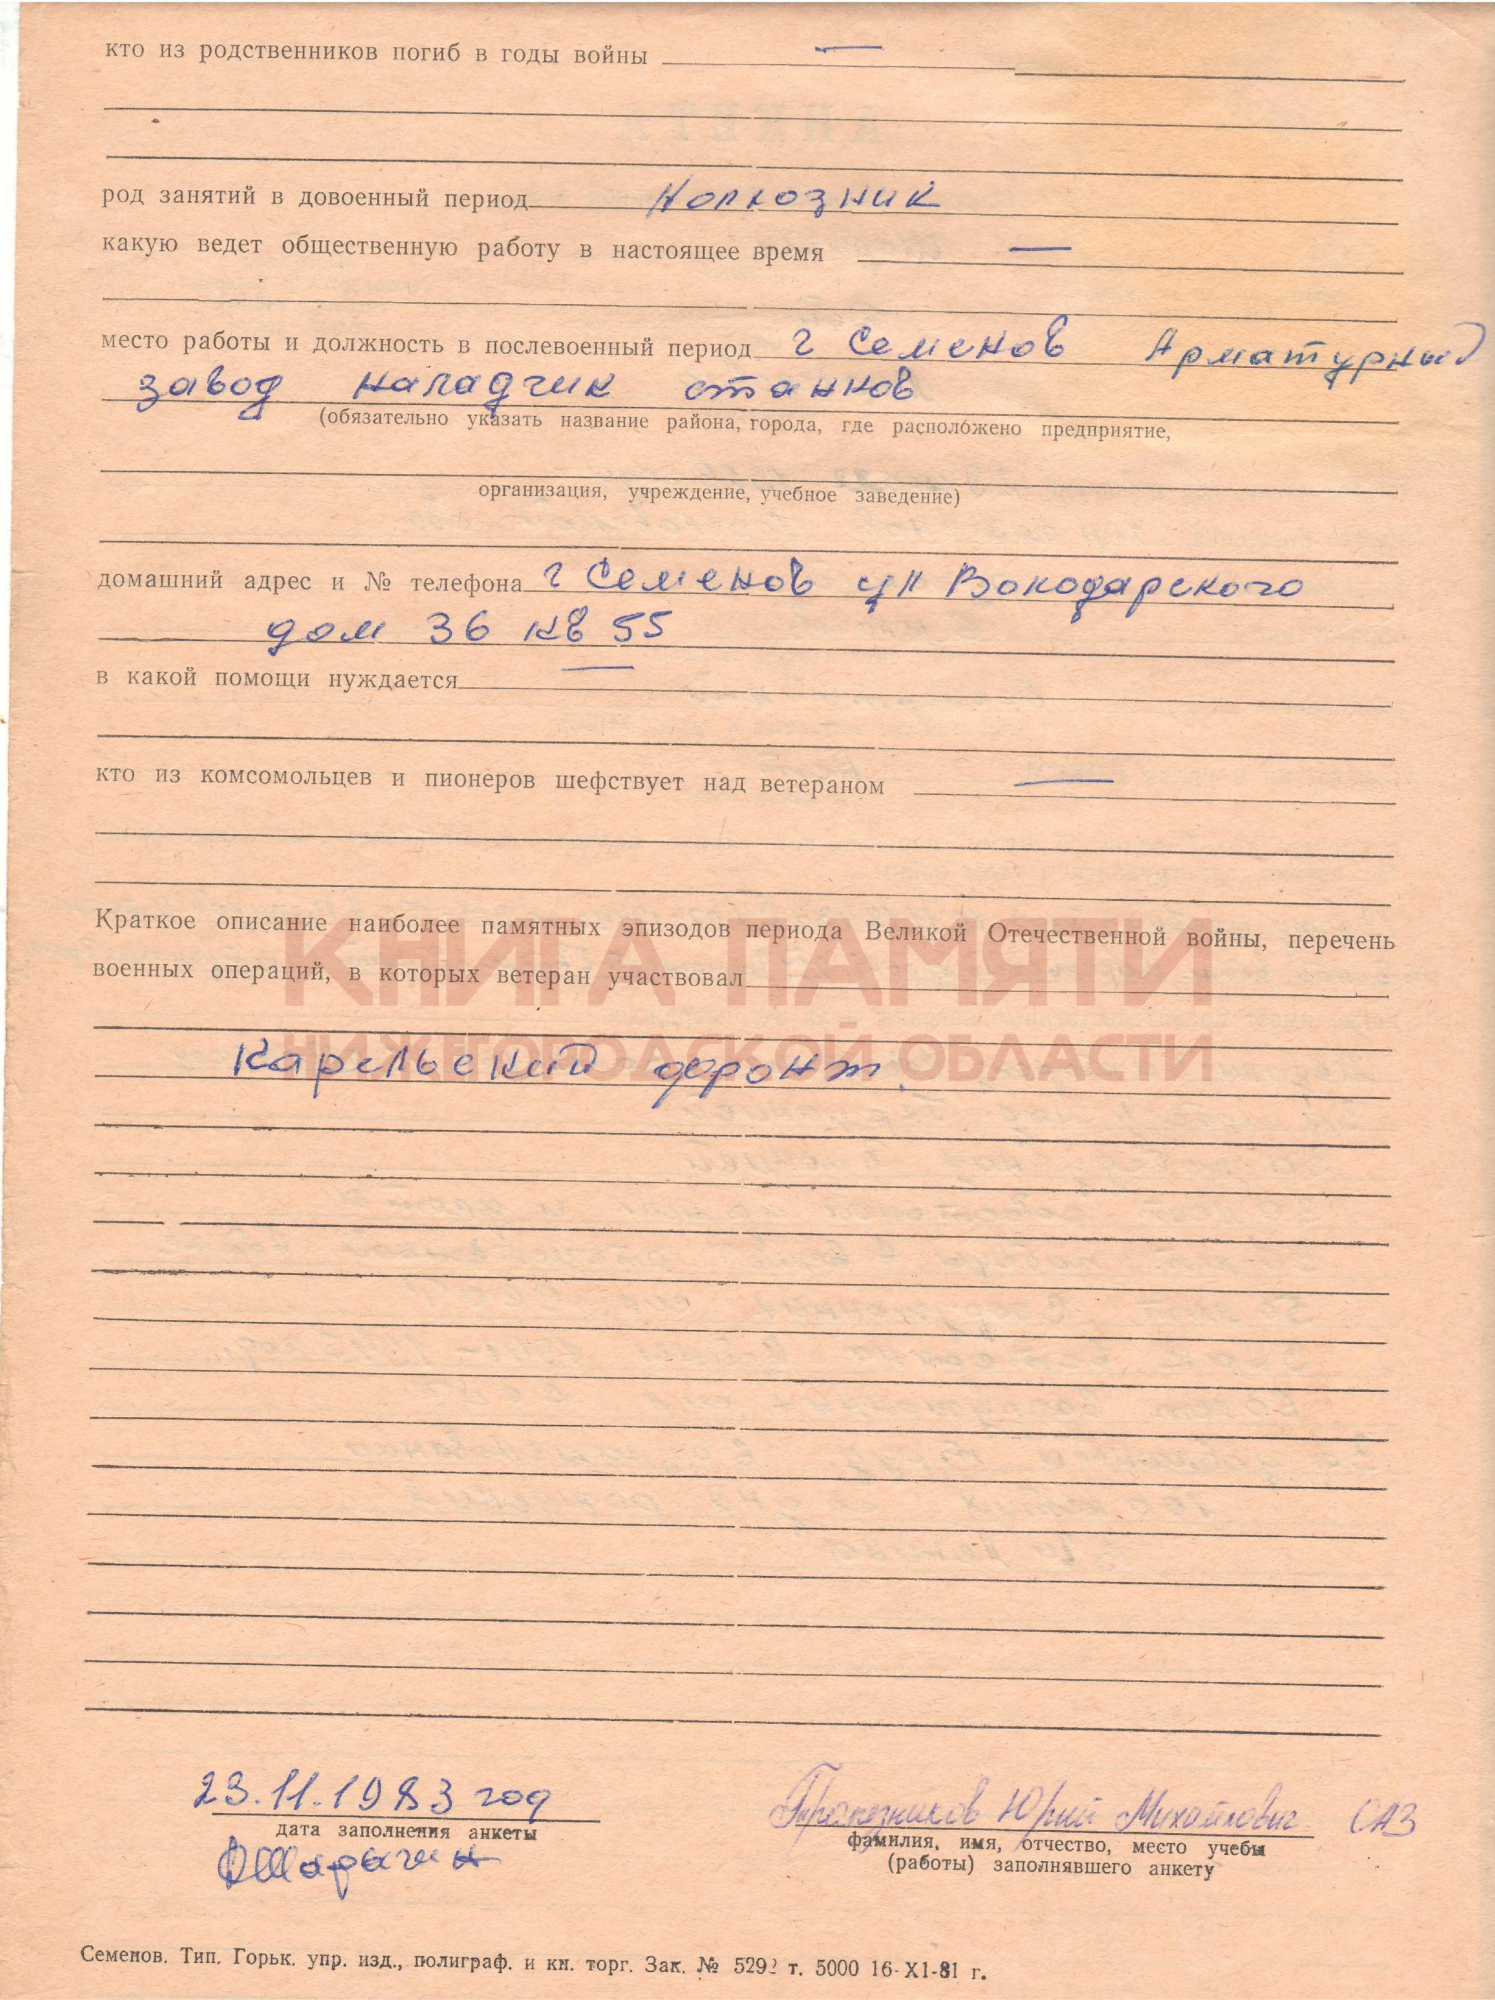 кто из родственников погиб в годы войны —
род занятий в довоенный период Колхозник
какую ведет общественную работу в настоящее время —
место работы и должность в послевоенный период г Семенов Арматурный
завод наладчик станков
(обязательно указать название района, города, где расположено предприятие,
организация, учреждение, учебное заведение)
домашний адрес и № телефона г Семенов ул Володарского
дом 36 кв 55
в какой помощи нуждается —
кто из комсомольцев и пионеров шефствует над ветераном —
Краткое описание наиболее памятных эпизодов периода Великой Отечественной войны, перечень
военных операций, в которых ветеран участвовал
КНИГА ПАМЯТИ
НИЖЕГОРОДСКОЙ ОБЛАСТИ
Карельский фронт.
23.11.1983 год
Юрий Михайлович САЗ
дата заполнения анкеты
фамилия, имя, отчество, место учебы
(работы) заполнявшего анкету
Семенов. Тип. Горьк. упр. изд., полиграф. и кн. торг. Зак. № 5292 т. 5000 16-XI-81 г.